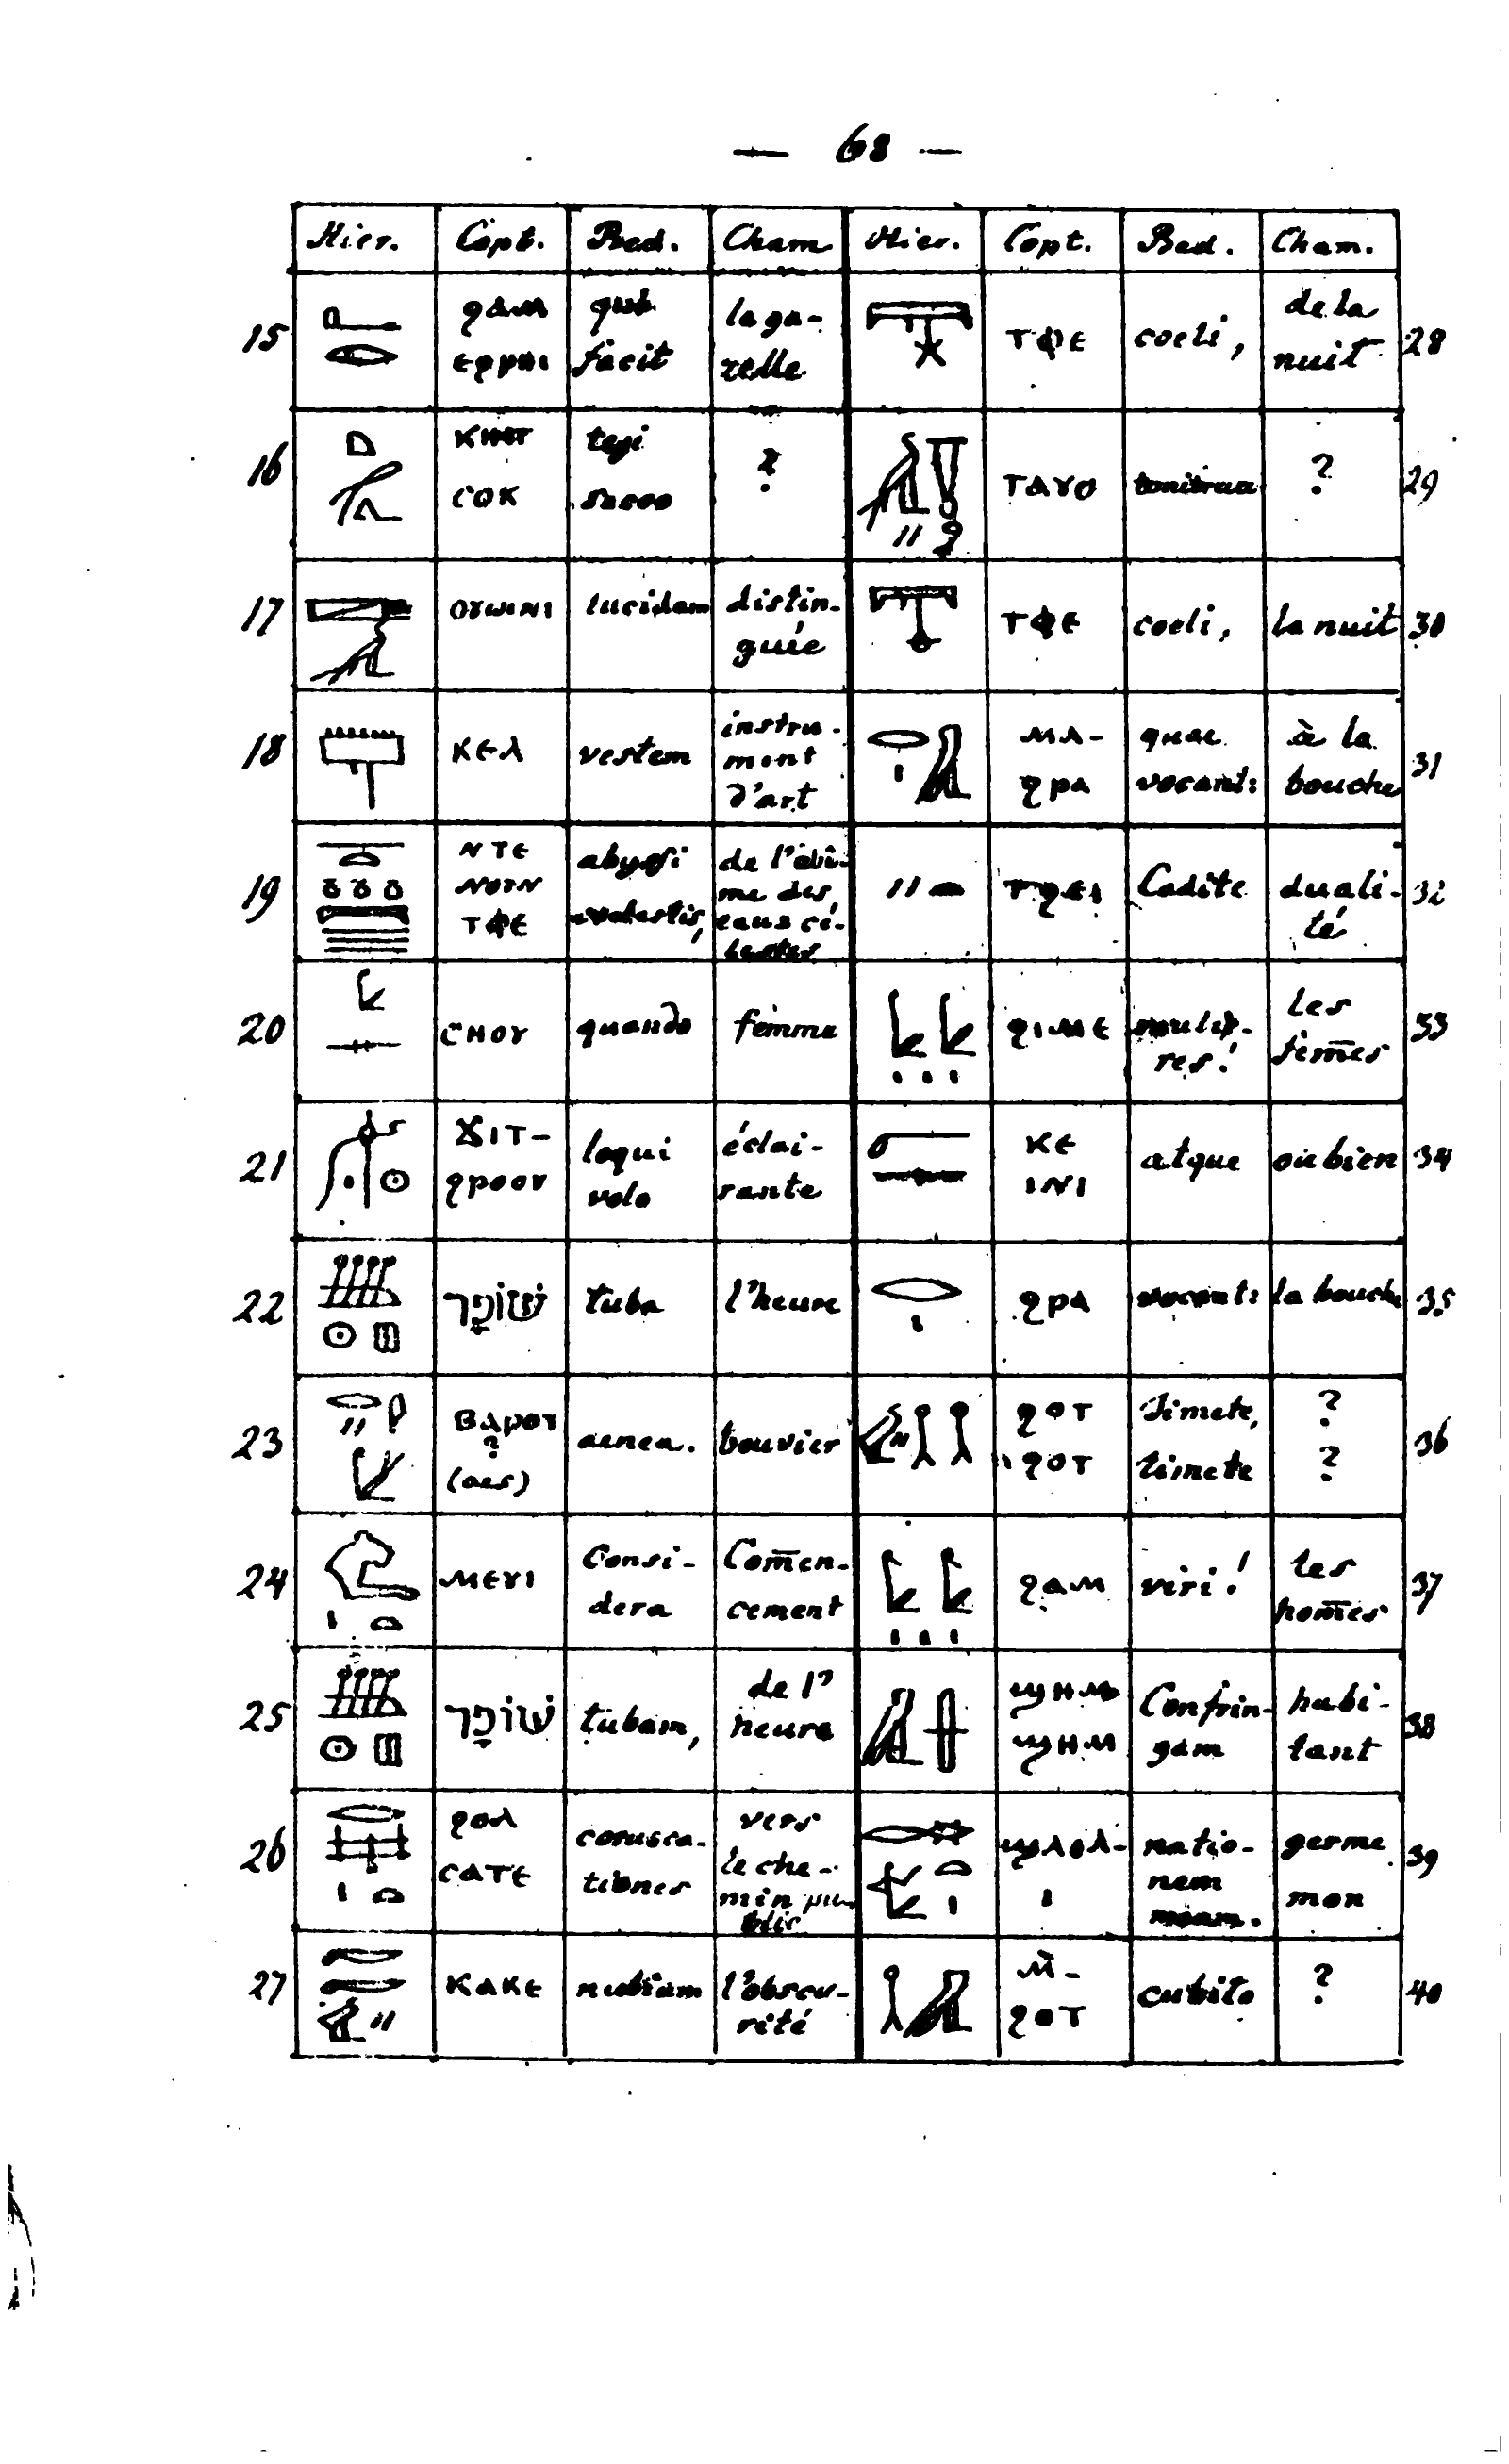 — 68 —
Hier. Copt. Bed. Cham Hier. Copt. Bed. Cham.
15 ϩⲁⲙ ⲉϩⲣⲏⲓ qui facit la ga-zelle
ⲧⲫⲉ coeli, de la nuit 28
16 ⲥⲟⲕ tegi sacco ?
ⲧⲁⲩⲟ tonitrua ? 29
17 ⲟⲩⲱⲓⲛⲓ lucidam distin-guée
ⲧⲫⲉ coeli, la nuit 30
18 ⲕⲉⲗ vestem instru-ment d'art
ⲙⲁ-ϩⲣⲁ quae vocant: à la bouche 31
19 ⲛⲧⲉ ⲛⲟⲩⲛ ⲧⲫⲉ abyssi coelestis, de l'abî-me des eaux cé-lestes
Cadite duali-té 32
20 ⲥⲏⲟⲩ quando femme
ϩⲓⲙⲉ mulie-res! les fem̄es 33
21 ϫⲓⲧ-ϩⲣⲟⲟⲩ loqui volo éclai-rante
ⲕⲉ ⲓⲛⲓ atque ou bien 34
22 שׁוֹפָר tuba l'heure
ϩⲣⲁ vocant: la bouche 35
23 ⲃⲁⲣⲟⲧ ? (aes) aenea. bouvier
ϩⲟⲧ ϩⲟⲧ Timete, timete ? ? 36
24 ⲙⲉⲩⲓ Consi-dera Com̄en-cement
ϩⲁⲙ viri! les hom̄es 37
25 שׁוֹפָר tubam, de l'heure
ϣⲏⲙ ϣⲏⲙ Confrin-gam habi-tant 38
26 ϩⲟⲗ ⲥⲁⲧⲉ corusca-tiones vers le che-min pu-blic
ϣⲗⲟⲗ-ⲓ natio-nem meam. germe mon 39
27 ⲕⲁⲕⲉ nubiam l'obscu-rité
ⲙ̀-ϩⲟⲧ cubito ? 40